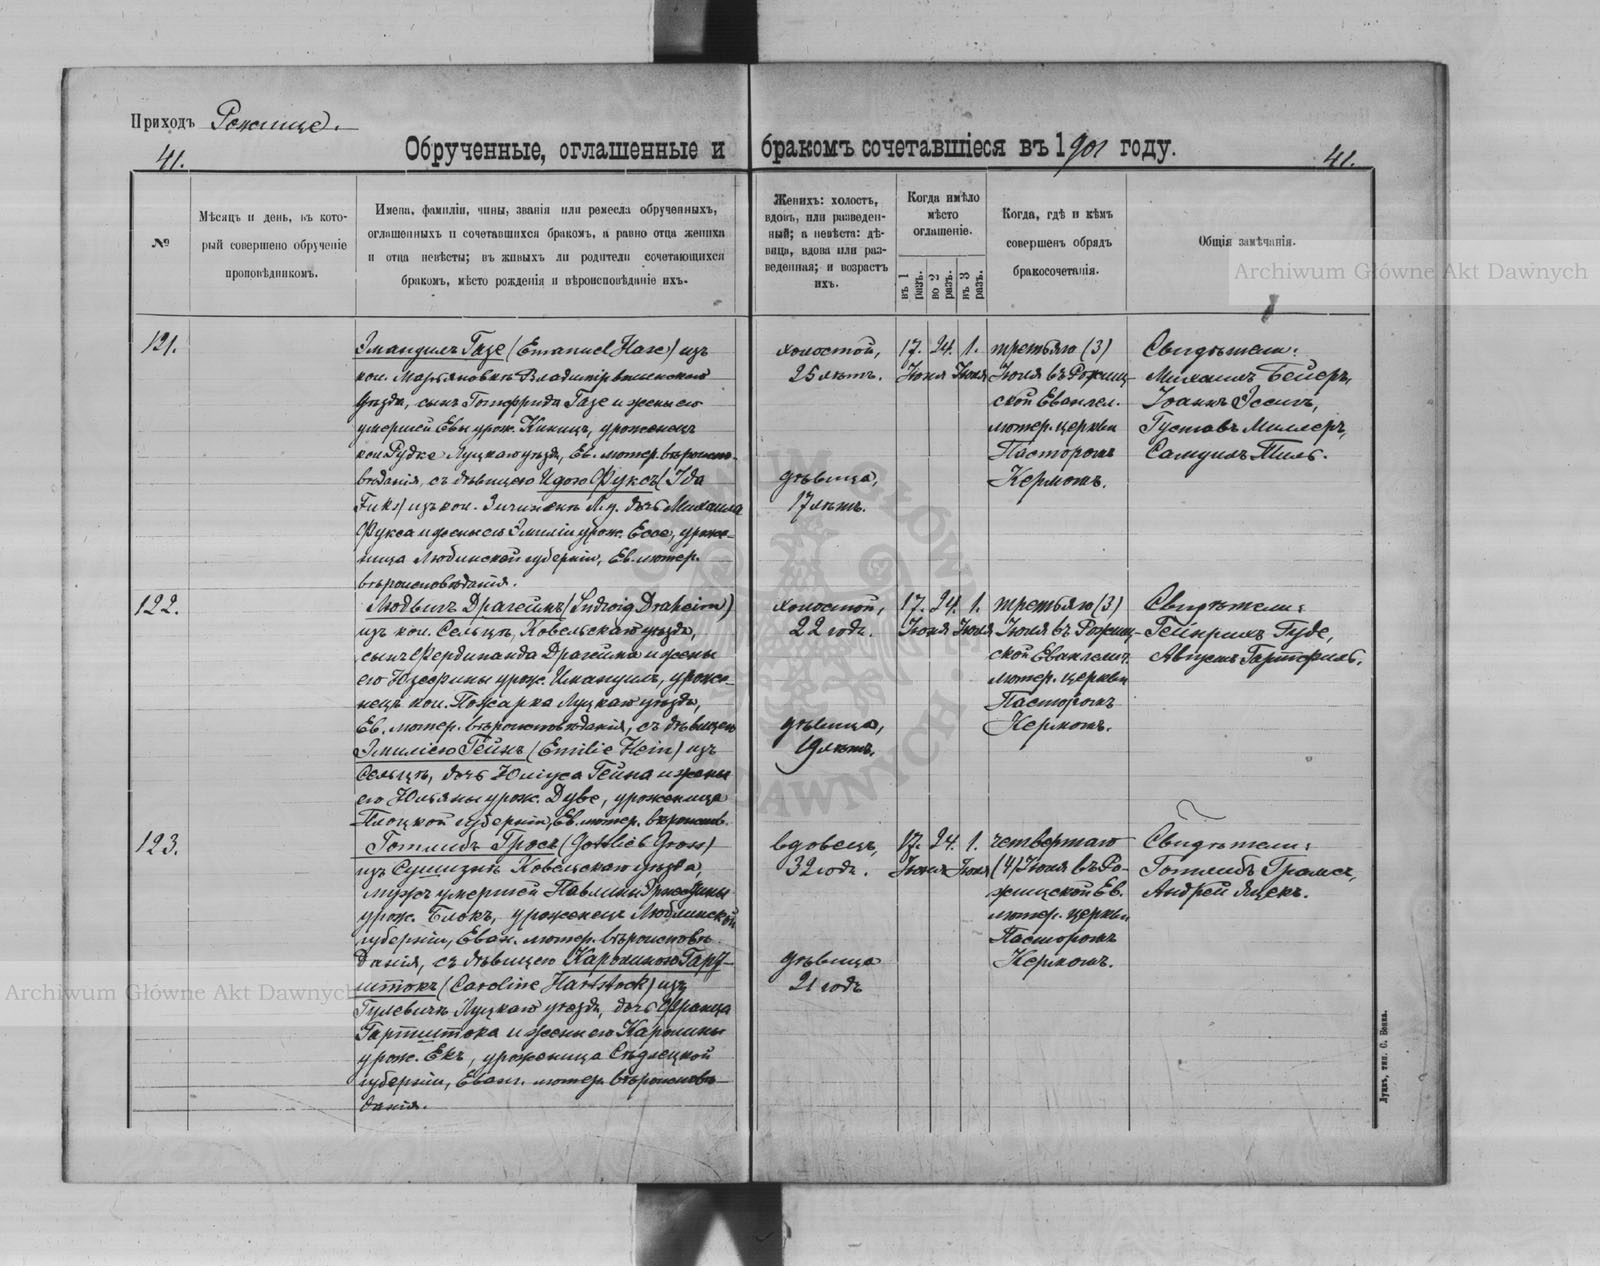 Приходъ Рожище.
41.
Обрученные, оглашенные и бракомъ сочетавшіеся въ 1901 году.
41.
№
Мѣсяцъ и день, въ кото-
рый совершено обрученіе
проповѣдникомъ.
Имена, фамиліи, чины, званія или ремесла обрученныхъ,
оглашенныхъ и сочетавшихся бракомъ, а равно отца жениха
и отца невѣсты; въ живыхъ ли родители сочетающихся
бракомъ, мѣсто рожденія и вѣроисповѣданіе ихъ.
Женихъ: холостъ,
вдовъ, или разведен-
ный; а невѣста: дѣ-
вица, вдова или раз-
веденная; и возрастъ
ихъ.
Когда имѣло
мѣсто
оглашеніе.
въ 1 разъ.
во 2 разъ.
въ 3 разъ.
Когда, гдѣ и кѣмъ
совершенъ обрядъ
бракосочетанія.
Общія замѣчанія.
Archiwum Główne Akt Dawnych
121.
Эмануилъ Газе (Emanuel Hase) изъ
кол. Марьяновки Владимірволынскаго
уѣзда, сынъ Готфрида Газе и жены его
умершей Евы урож. Киницъ, уроженецъ
кол. Рудке Луцкаго уѣзда, Ев. лютер. вѣроиспо-
вѣданія, съ дѣвицею Идою Фуксъ (Ida
Fuks) изъ кол. Л. у. дочь Михаила
Фукса и жены его Эмиліи урож. Ессе, уроже-
ница Люблинской губерніи, Ев. лютер.
вѣроисповѣданія.
холостой,
25 лѣтъ.
дѣвица,
17 лѣтъ.
17. 24. 1.
Іюня Іюля
третьяго (3)
Іюля въ Рожищ-
ской Евангел.
лютер. церкви
Пасторомъ
Керномъ.
Свидѣтели:
Михаилъ Бейеръ,
Іоаннъ Эссигъ,
Густавъ Миллеръ,
Самуилъ Тиль.
122.
Людвигъ Драгеймъ (Ludwig Draheim)
изъ кол. Сельцъ, Ковельскаго уѣзда,
сынъ Фердинанда Драгейма и жены
его Юзефины урож. Имануилъ, уроже-
нецъ кол. Пожарка Луцкаго уѣзда,
Ев. лютер. вѣроисповѣданія, съ дѣвицею
Эмиліею Гейнъ (Emilie Hein) изъ
Сельцъ, дочь Юліуса Гейна и жены
его Юльяны урож. Дубе, уроженица
Плоцкой губерніи, Ев. лютер. вѣроиспов.
холостой,
22 года.
дѣвица,
19 лѣтъ.
17. 24. 1.
Іюня Іюля
третьяго (3)
Іюля въ Рожищ-
ской Евангелич.
лютер. церкви
Пасторомъ
Керномъ.
Свидѣтели:
Гейнрихъ Гуде,
Августъ Гартфиль.
123.
Готлибъ Гросъ (Gottlieb Gross)
изъ Ковельскаго уѣзда,
мужъ умершей Павлины
урож. Блокъ, уроженецъ Люблинской
губерніи, Еван. лютер. вѣроисповѣ-
данія, съ дѣвицею Каролиною Гарт-
штокъ (Caroline Hartstock) изъ
Гулевичъ Луцкаго уѣзда, дочь Франца
Гартштока и жены его Каролины
урож. Екъ, уроженица Сѣдлецкой
губерніи, Еванг. лютер. вѣроисповѣ-
данія.
вдовецъ,
32 года.
дѣвица
21 года
17. 24. 1.
Іюня Іюля
четвертаго
(4) Іюля въ Ро-
жищской Ев.
лютер. церкви
Пасторомъ
Керномъ.
Свидѣтели:
Готлибъ Грамсъ,
Андрей Яцекъ.
Archiwum Główne Akt Dawnych
Луцкъ, тип. С. Бонка.